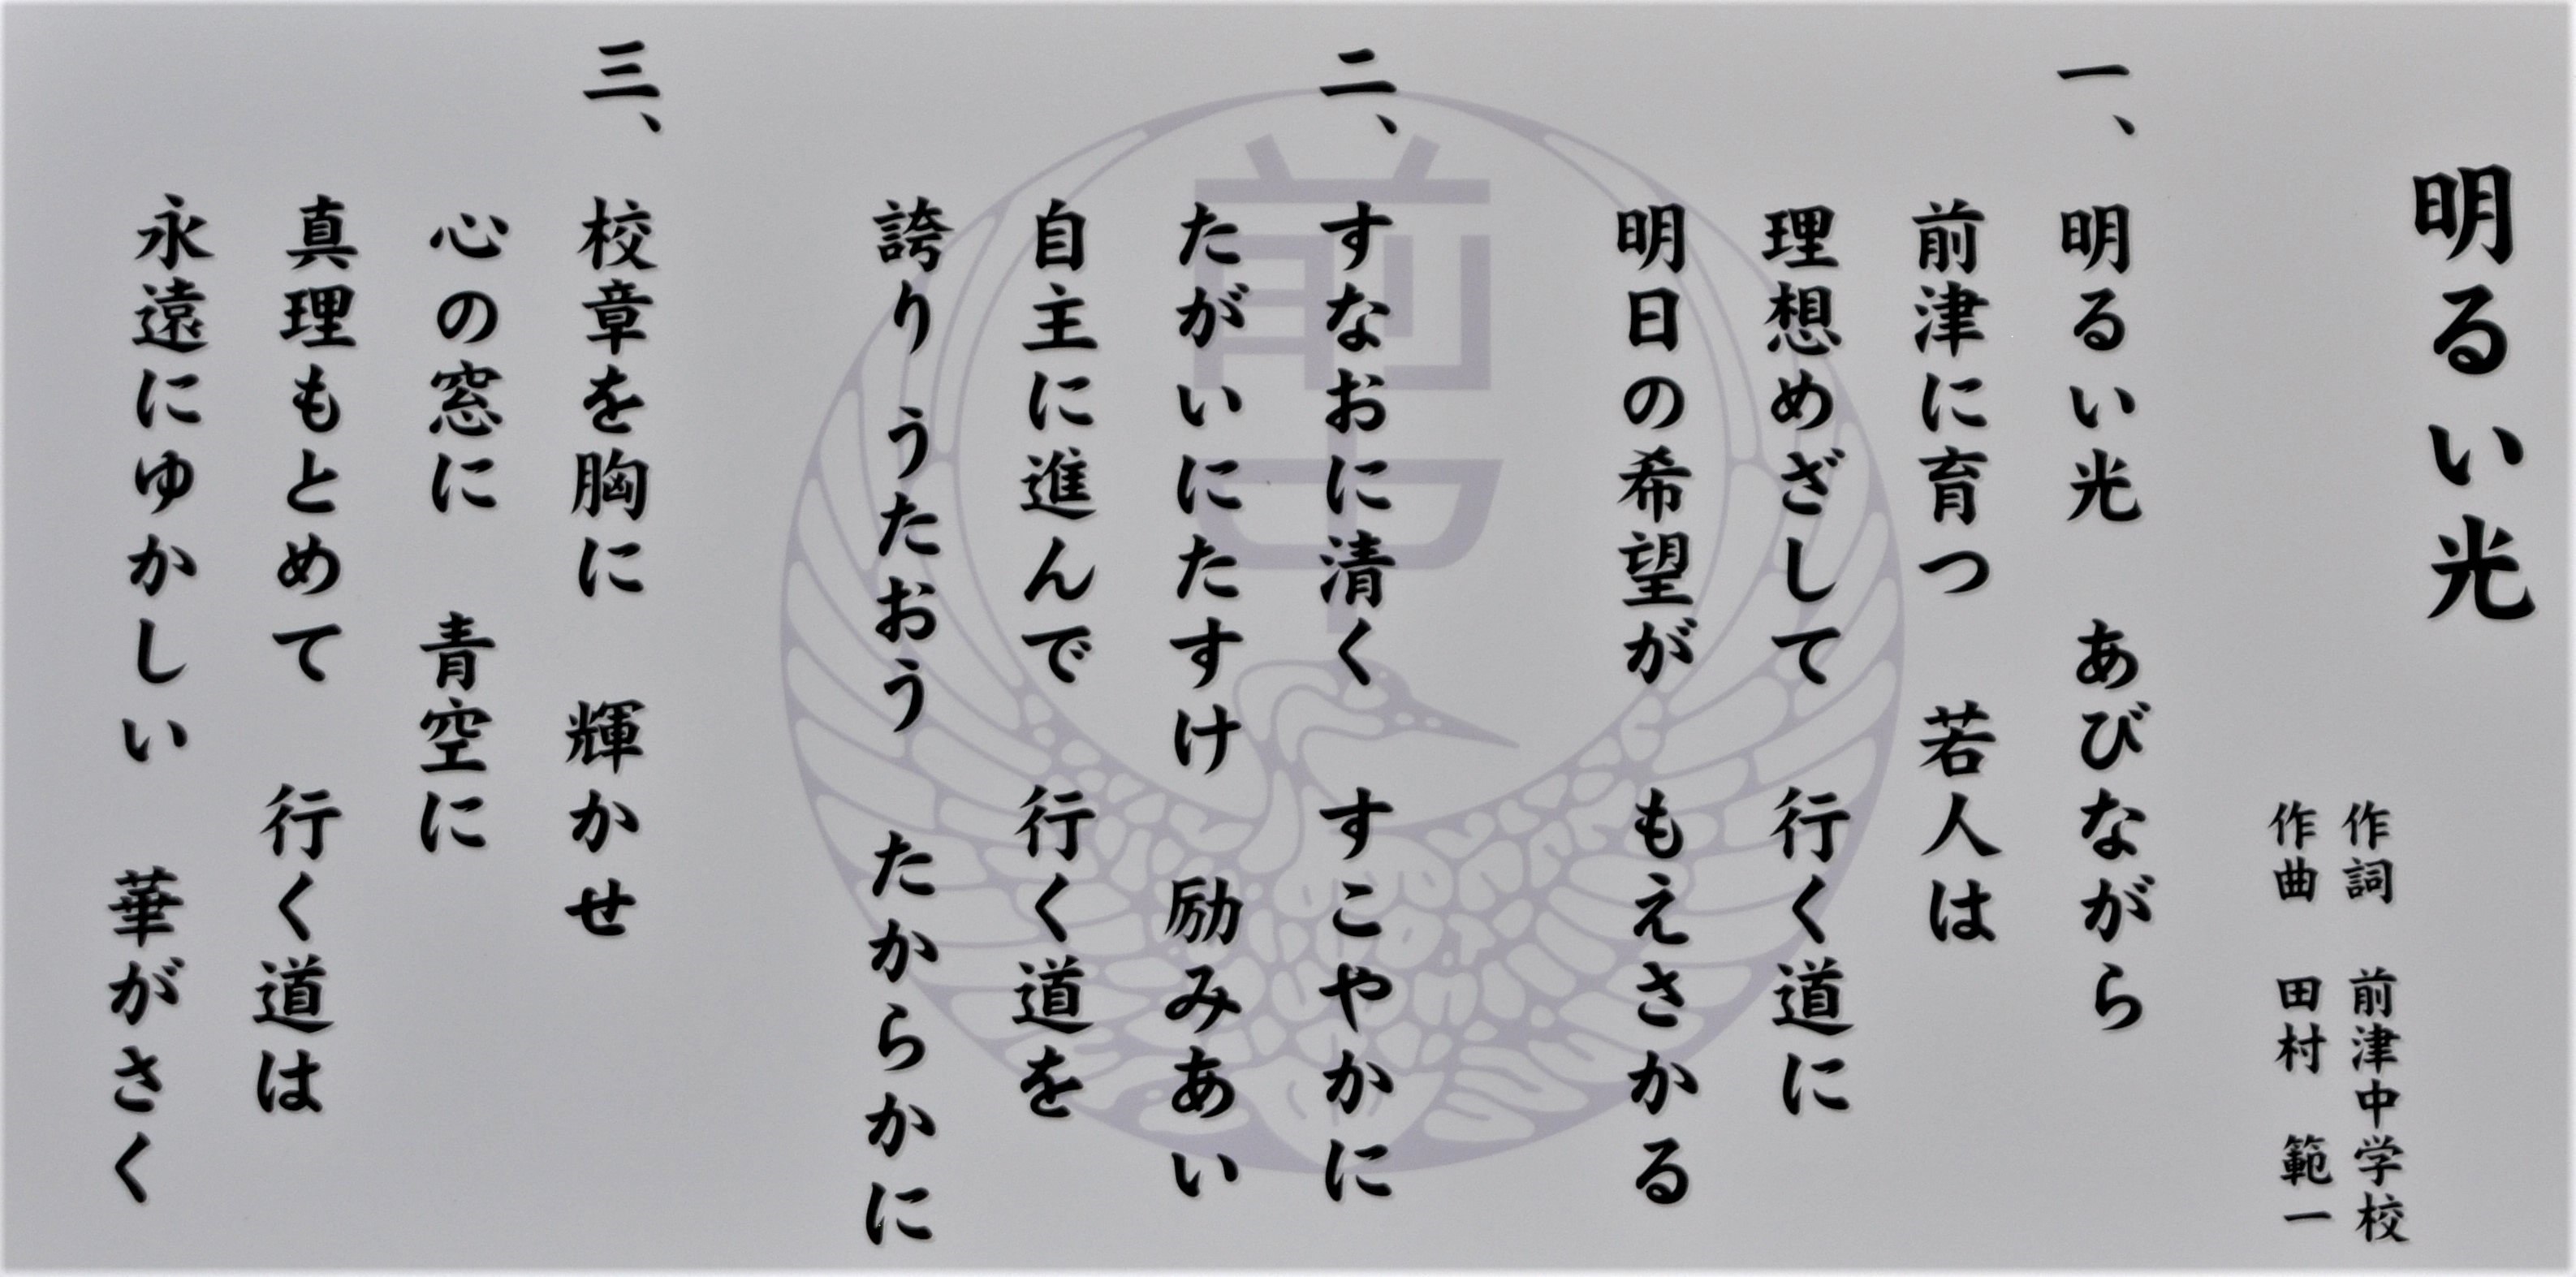 明るい光
作詞　前津中学校
作曲　田村　範一
一、明るい光　あびながら
前津に育つ　若人は
理想めざして　行く道に
明日の希望が　もえさかる
二、すなおに清く　すこやかに
たがいにたすけ　励みあい
自主に進んで　行く道を
誇り　うたおう　たからかに
三、校章を胸に　輝かせ
心の窓に　青空に
真理もとめて　行く道は
永遠にゆかしい　華がさく
前中